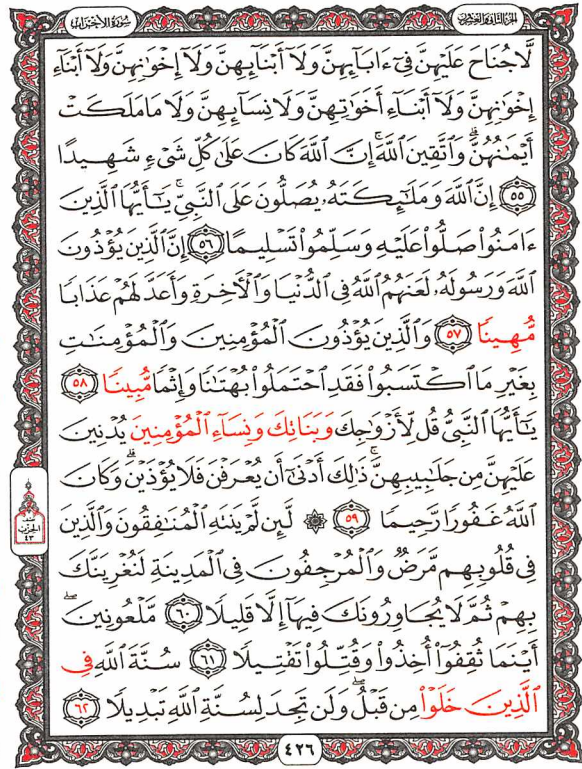 الجزء الثاني والعشرون
سورة الأحزاب
لَّا جُنَاحَ عَلَيْهِنَّ فِىٓ ءَابَآئِهِنَّ وَلَآ أَبْنَآئِهِنَّ وَلَآ إِخْوَٰنِهِنَّ وَلَآ أَبْنَآءِ
إِخْوَٰنِهِنَّ وَلَآ أَبْنَآءِ أَخَوَٰتِهِنَّ وَلَا نِسَآئِهِنَّ وَلَا مَا مَلَكَتْ
أَيْمَٰنُهُنَّ ۗ وَٱتَّقِينَ ٱللَّهَ ۚ إِنَّ ٱللَّهَ كَانَ عَلَىٰ كُلِّ شَىْءٍ شَهِيدًا
۝٥٥ إِنَّ ٱللَّهَ وَمَلَٰٓئِكَتَهُۥ يُصَلُّونَ عَلَى ٱلنَّبِىِّ ۚ يَٰٓأَيُّهَا ٱلَّذِينَ
ءَامَنُوا۟ صَلُّوا۟ عَلَيْهِ وَسَلِّمُوا۟ تَسْلِيمًا ۝٥٦ إِنَّ ٱلَّذِينَ يُؤْذُونَ
ٱللَّهَ وَرَسُولَهُۥ لَعَنَهُمُ ٱللَّهُ فِى ٱلدُّنْيَا وَٱلْءَاخِرَةِ وَأَعَدَّ لَهُمْ عَذَابًا
مُّهِينًا ۝٥٧ وَٱلَّذِينَ يُؤْذُونَ ٱلْمُؤْمِنِينَ وَٱلْمُؤْمِنَٰتِ
بِغَيْرِ مَا ٱكْتَسَبُوا۟ فَقَدِ ٱحْتَمَلُوا۟ بُهْتَٰنًا وَإِثْمًا مُّبِينًا ۝٥٨
يَٰٓأَيُّهَا ٱلنَّبِىُّ قُل لِّأَزْوَٰجِكَ وَبَنَاتِكَ وَنِسَآءِ ٱلْمُؤْمِنِينَ يُدْنِينَ
عَلَيْهِنَّ مِن جَلَٰبِيبِهِنَّ ۚ ذَٰلِكَ أَدْنَىٰٓ أَن يُعْرَفْنَ فَلَا يُؤْذَيْنَ ۗ وَكَانَ
ٱللَّهُ غَفُورًا رَّحِيمًا ۝٥٩ ۞ لَّئِن لَّمْ يَنتَهِ ٱلْمُنَٰفِقُونَ وَٱلَّذِينَ
فِى قُلُوبِهِم مَّرَضٌ وَٱلْمُرْجِفُونَ فِى ٱلْمَدِينَةِ لَنُغْرِيَنَّكَ
بِهِمْ ثُمَّ لَا يُجَاوِرُونَكَ فِيهَآ إِلَّا قَلِيلًا ۝٦٠ مَّلْعُونِينَ ۖ
أَيْنَمَا ثُقِفُوٓا۟ أُخِذُوا۟ وَقُتِّلُوا۟ تَقْتِيلًا ۝٦١ سُنَّةَ ٱللَّهِ فِى
ٱلَّذِينَ خَلَوْا۟ مِن قَبْلُ ۖ وَلَن تَجِدَ لِسُنَّةِ ٱللَّهِ تَبْدِيلًا ۝٦٢
نصف
الحزب
٤٣
٤٢٦